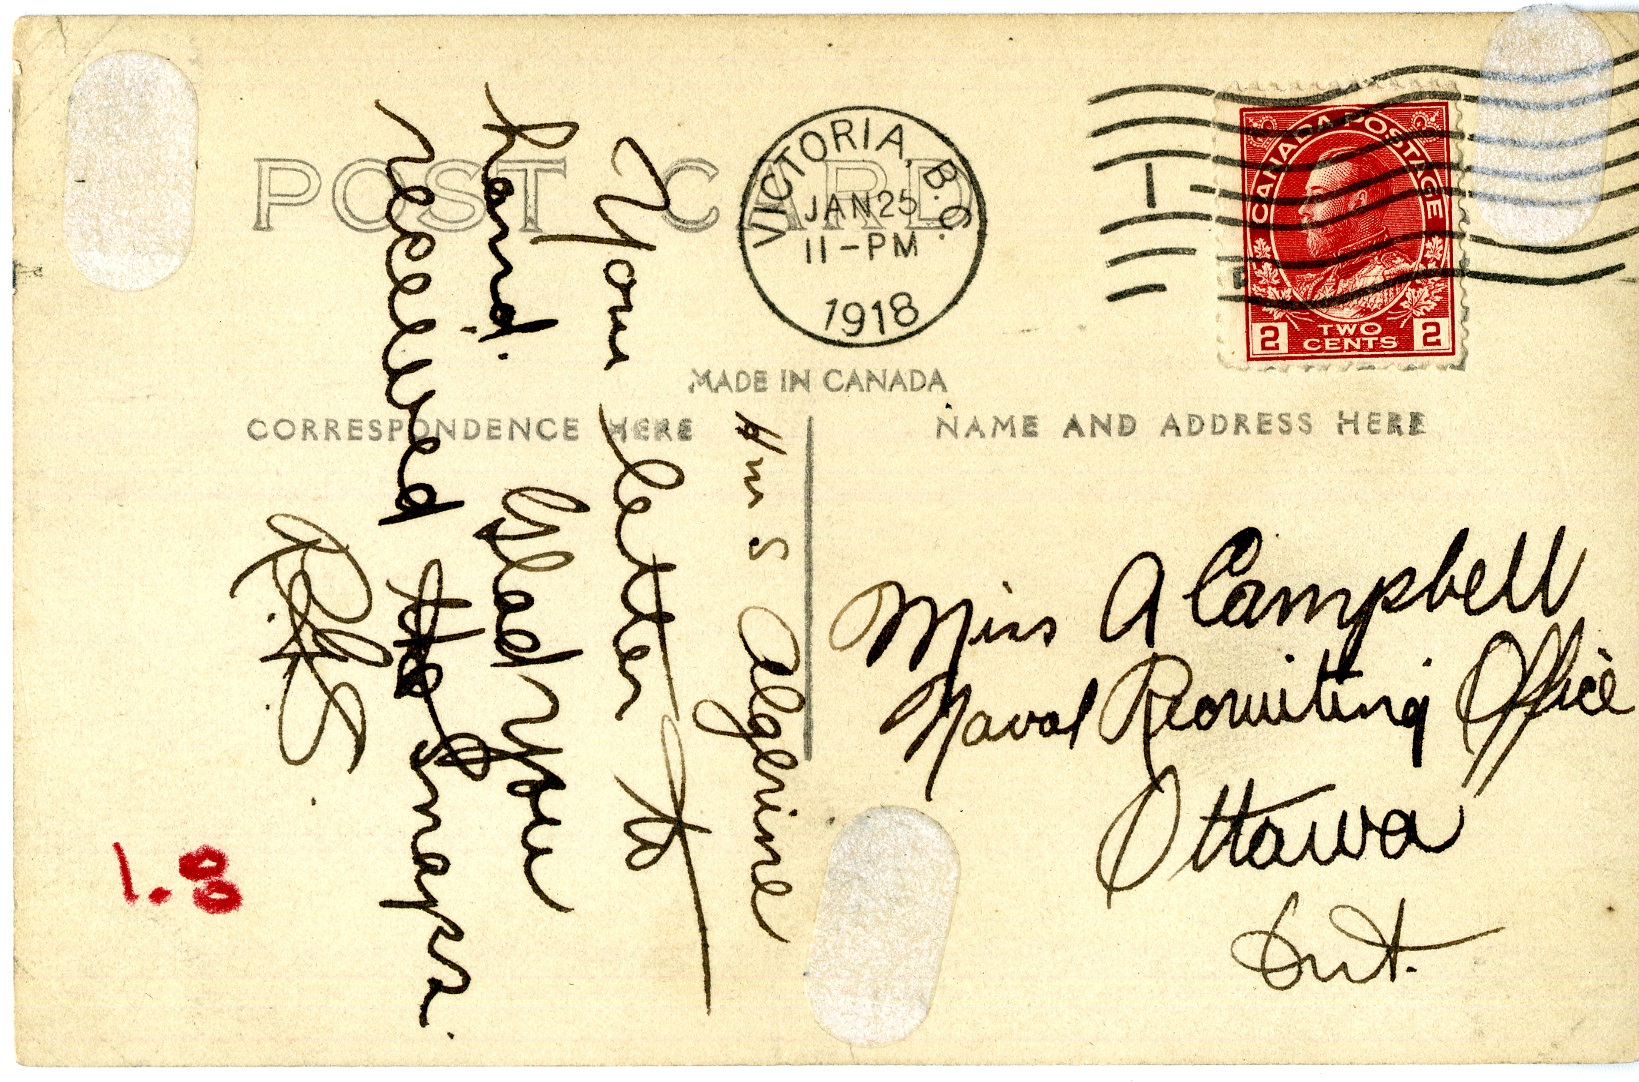 POST CARD
VICTORIA, B.C.
JAN 25
11-PM
1918
1
CANADA POSTAGE
2 TWO CENTS 2
MADE IN CANADA
CORRESPONDENCE HERE
NAME AND ADDRESS HERE
HMS Algerine
Your letter to
hand. Glad you
received the snaps.
Miss A Campbell
Naval Recruiting Office
Ottawa
Ont.
1.8